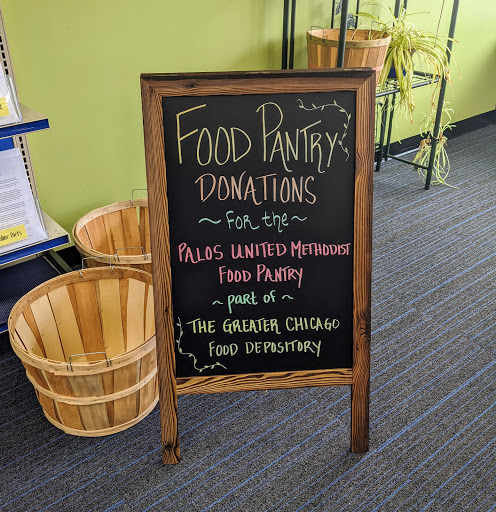 FOOD PANTRY
DONATIONS
~ FOR the ~
PALOS UNITED METHODIST
FOOD PANTRY
~ part of ~
THE GREATER CHICAGO
FOOD DEPOSITORY